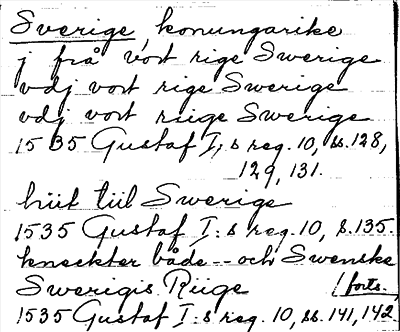 Sverige, konungarike
j frå vort rige Swerige
vdj vort rige Swerige
vdj vort riige Swerige
1535 Gustaf I:s reg. 10, ss. 128,
129, 131.
hiit tiil Swerige
1535 Gustaf I:s reg. 10, s. 135.
kneckter både -- och Swenske
Swerigis Riige (forts.
1535 Gustaf I:s reg. 10, ss. 141, 142.